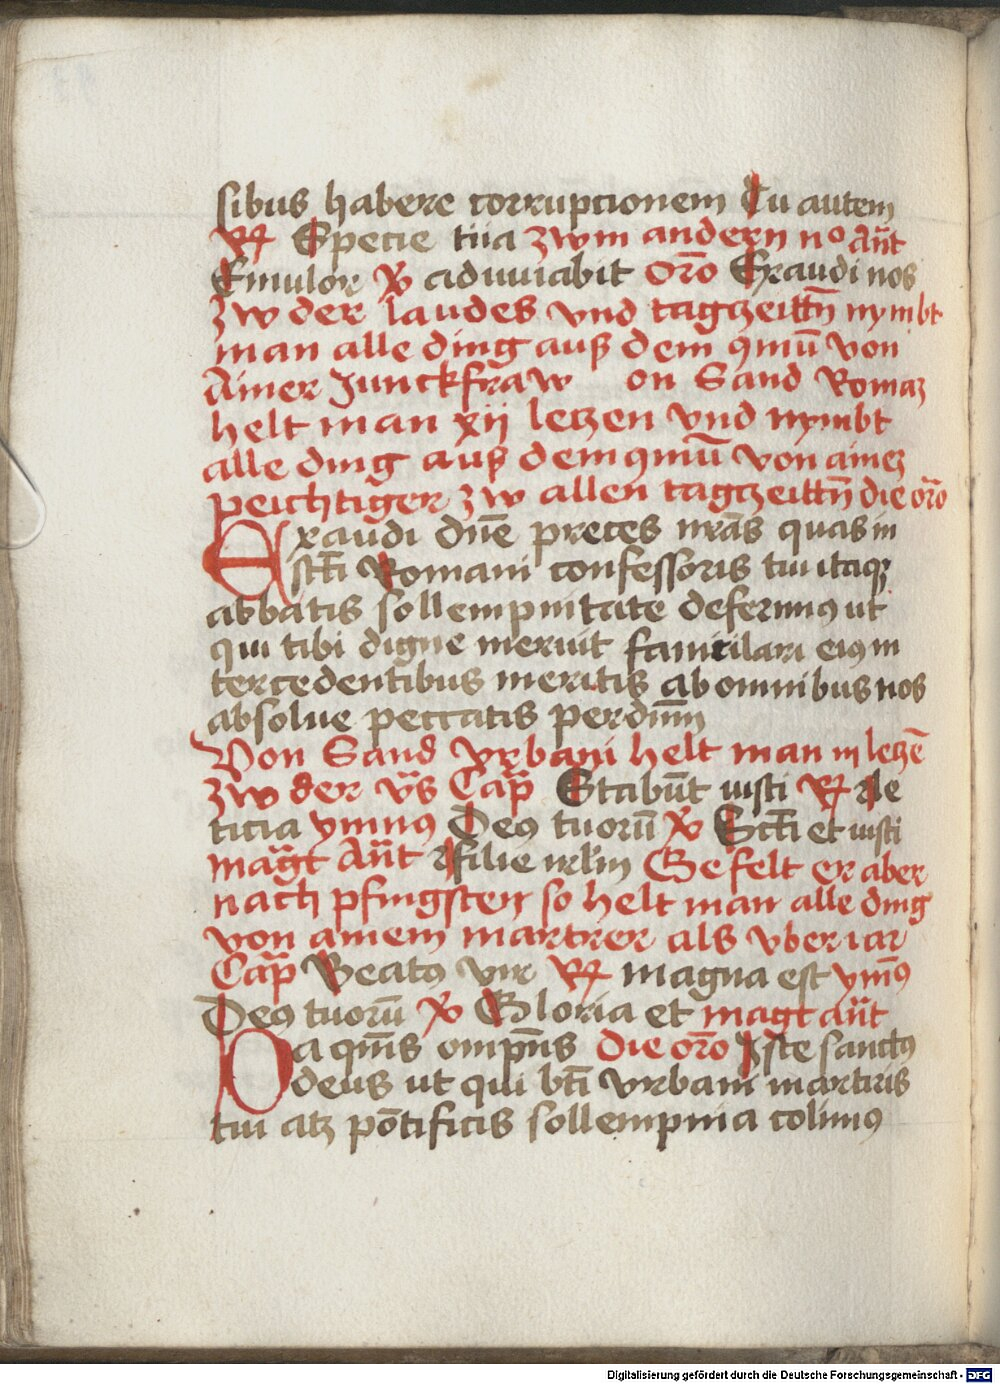 sibus habere corruptionem Tu autem
R Specie tua zwm andern no an̄t
Emulor V̸ adiuuabit or̄o Exaudi nos
zw der laudes vnd tagczeittn̄ nymbt
man alle ding auß dem 9mū von
Ainer Junckfraw on Sand Romaʒ
helt man xij leczen vnd nymbt
alle ding auß dem 9mū von aineʒ
peichtiger zw allen tagczeittn̄ die or̄o
Exaudi dn̄e preces nr̄as quas in
sct̄i Romani confessoris tui itaqꝫ
abbatis sollempnitate deferimꝰ ut
qui tibi digne meruit famulari eiꝰ in
tercedentibus meritis ab omnibus nos
absolue peccatis per dn̄m
Von Sand Vrbani helt man iij leczē
zw der vs̄ Cap̄ Stabūt iusti R le
ticia ymnꝰ Deꝰ tuorū V̸ Sct̄i et iusti
mag̅t An̄t filie irl̄m Gefelt er aber
nach pfingsten so helt man alle ding
von ainem martrer als vber iar
Cap̄ Beatꝰ vir R magna est ym̄ꝰ
Deꝰ tuorū V̸ Gloria et magt an̄t
Iste sanctꝰ die or̄o
Da qm̄s omp̄ns
deus ut qui bt̄i Vrbani martiris
tui atꝫ pōtificis sollempnia colimꝰ
Digitalisierung gefördert durch die Deutsche Forschungsgemeinschaft - DFG